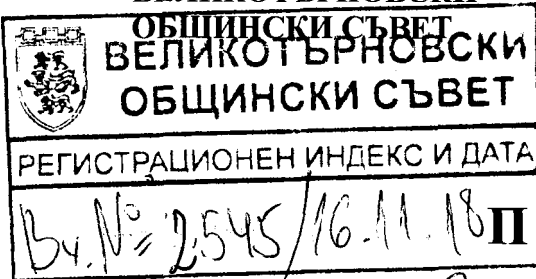 ВЕЛИКОТЪРНОВСКИ
ОБЩИНСКИ СЪВЕТ
ВЕЛИКОТЪРНОВСКИ
ОБЩИНСКИ СЪВЕТ
РЕГИСТРАЦИОНЕН ИНДЕКС И ДАТА
Вх. № 2545/16.11.18 П